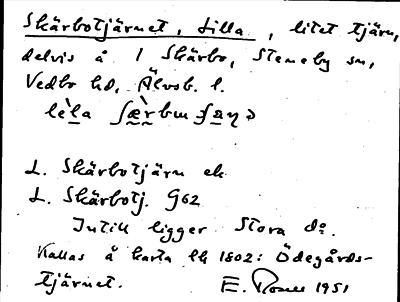 Skärbotjärnet, Lilla, litet tjärn,
delvis å 1 Skärbo, Steneby sn,
Vedbo hd, Älvsb. l.
Skärbotjärn ek
L. Skärbotj. G62
Intill ligger Stora do.
Kallas å karta LK 1802: Ödegårds-
tjärnet. E. 1951